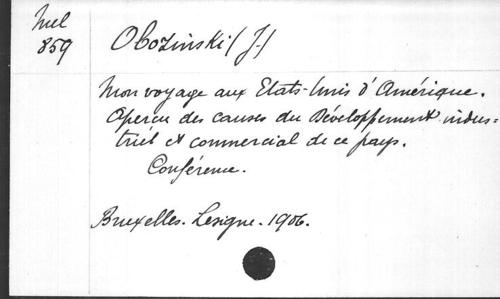 Mél
859
Obozinski (J.)
Mon voyage aux Etats-Unis d'Amérique.
Apercu des causes du Développement indus=
triel et commercial de ce pays.
Conférence.
Bruxelles. Lesigne. 1906.